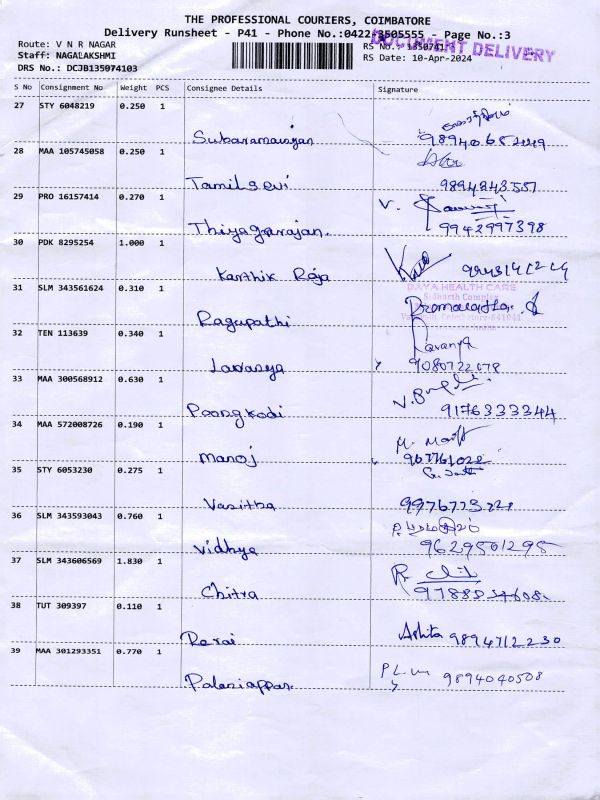 THE PROFESSIONAL COURIERS, COIMBATORE
Delivery Runsheet - P41 - Phone No.:0422-3505555 - Page No.:3
DOCUMENT DELIVERY
Route: V N R NAGAR
RS No.: 1350741
Staff: NAGALAKSHMI
RS Date: 10-Apr-2024
DRS No.: DCJB135074103
S No Consignment No Weight PCS Consignee Details Signature
27 STY 6048219 0.250 1
Subaramanayan
28 MAA 105745058 0.250 1
Tamilselvi 9894843551
29 PRO 16157414 0.270 1
Thiyagarajan. 9942997398
30 PDK 8295254 1.000 1
Karthik Raja
31 SLM 343561624 0.310 1
DAYA HEALTH CARE
Sidharth Complex
Ragupathi
32 TEN 113639 0.340 1
Lavanya 9080722078
33 MAA 300568912 0.630 1
Poongkodi 9176333344
34 MAA 572008726 0.190 1
Manoj
35 STY 6053230 0.275 1
Vasitha
36 SLM 343593043 0.760 1
Vidhya 9629501295
37 SLM 343606569 1.830 1
Chitra
38 TUT 309397 0.110 1
Ashita 9894712230
39 MAA 301293351 0.770 1
9894040508
Palaniappan